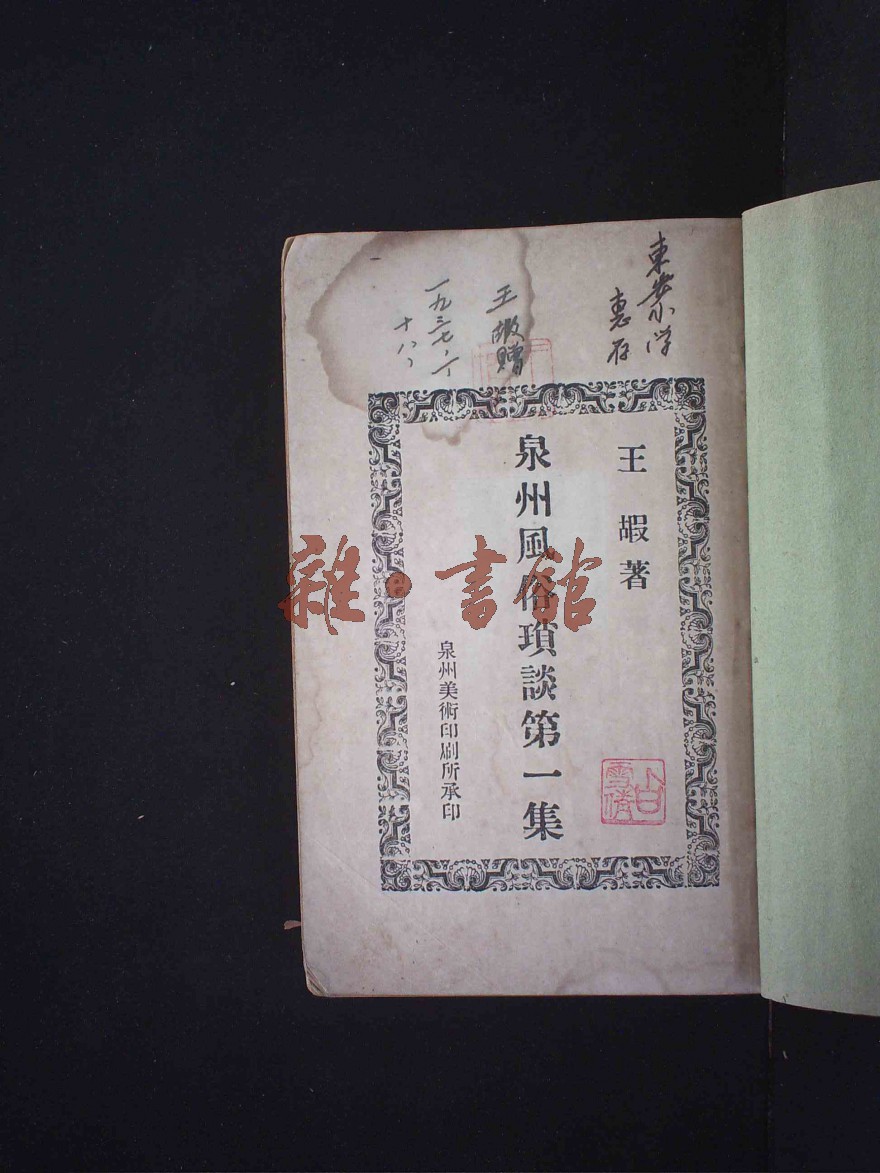 東
小学
惠存
王嘏贈
一九三七
十八
王嘏著
泉州風俗瑣談第一集
泉州美術印刷所承印
雜·書館